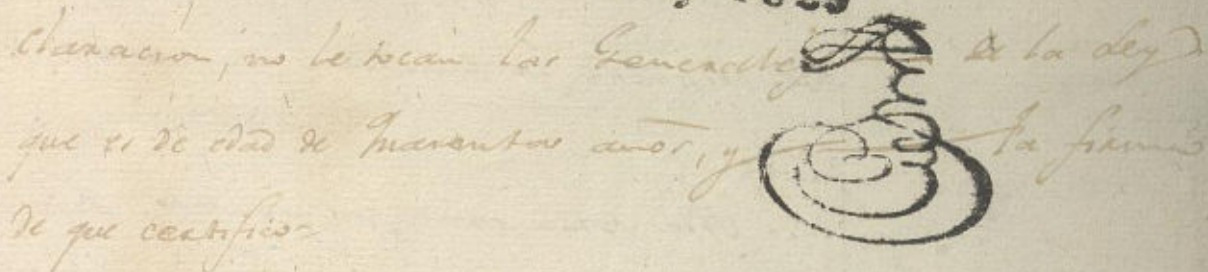 claracion, no le tocan las Generales de la Ley
que es de edad de quarenta años, y la firmó
de que certifico=